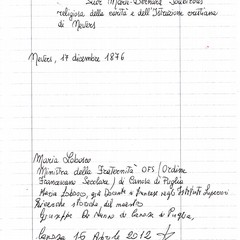 Suor Marie-Bernard Soubirous
religiosa della carità e dell'Istruzione cristiana
di Nevers
Nevers, 17 dicembre 1876
Maria Lobosco
Ministra della Fraternità OFS/Ordine
Francescano Secolare, di Canosa di Puglia
Maria Lobosco, già Docente di francese negli Istituti Superiori
Ricerche storiche del maestro
Giuseppe Di Nunno di Canosa di Puglia,
Canosa 16 Aprile 2012